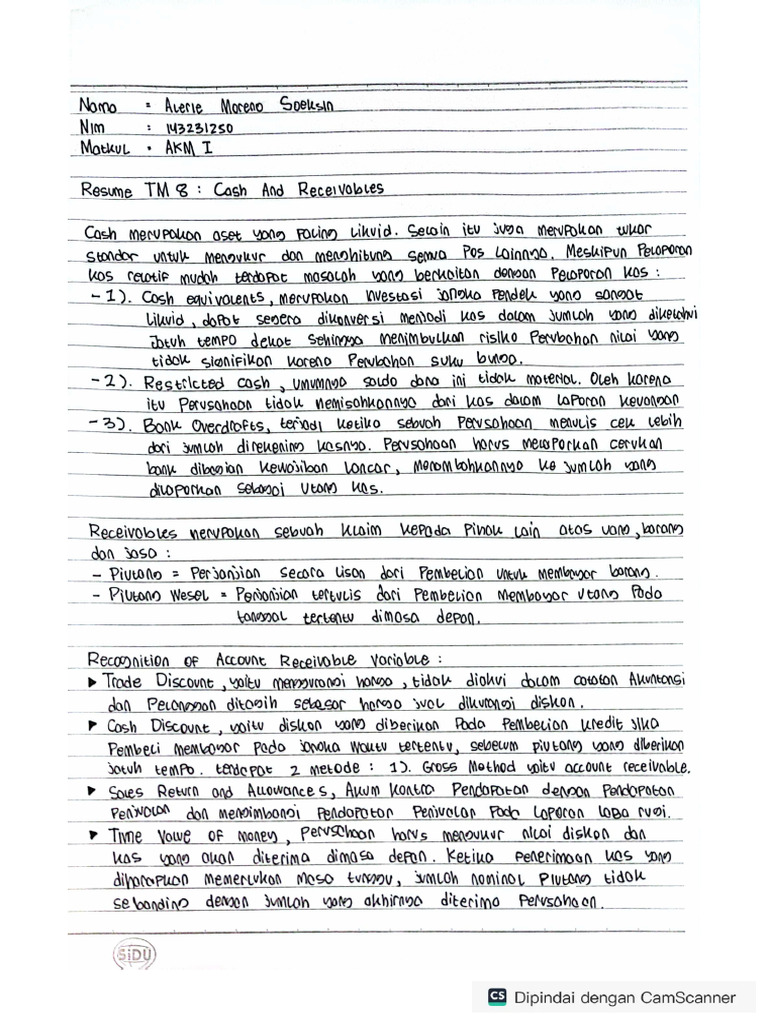 Nama : Alerie Moreno Soeksin
Nim : 143231250
Matkul : AKM I
Resume TM 8 : Cash And Receivables
Cash merupakan aset yang paling likuid. Selain itu juga merupakan tukar
standar untuk mengukur dan menghitung semua pos lainnya. Meskipun Pelaporan
kas relatif mudah terdapat masalah yang berkaitan dengan Pelaporan kas :
- 1). Cash equivalents, merupakan investasi jangka Pendek yang sangat
likuid, dapat segera dikonversi menjadi kas dalam jumlah yang diketahui
jatuh tempo dekat sehingga menimbulkan risiko Perubahan nilai yang
tidak signifikan karena Perubahan suku bunga.
- 2). Restricted cash, umumnya saldo dana ini tidak material. Oleh karena
itu Perusahaan tidak memisahkannya dari kas dalam laporan keuangan
- 3). Bank Overdrafts, terjadi ketika sebuah Perusahaan menulis cek lebih
dari jumlah direkening kasnya. Perusahaan harus melaporkan cerukan
bank dibagian kewajiban lancar, menambahkannya ke jumlah yang
dilaporkan sebagai utang kas.
Receivables merupakan sebuah klaim kepada Pihak lain atas uang, barang
dan jasa :
- Piutang = Perjanjian secara lisan dari Pembelian untuk membayar barang.
- Piutang Wesel = Perjanjian tertulis dari Pembelian membayar utang Pada
tanggal tertentu dimasa depan.
Recognition of Account Receivable Variable :
▶ Trade Discount, yaitu mengurangi harga, tidak diakui dalam catatan Akuntansi
dan Pelanggan ditagih sebesar harga jual dikurangi diskon.
▶ Cash Discount, yaitu diskon yang diberikan Pada Pembelian kredit jika
Pembeli membayar Pada jangka waktu tertentu, sebelum piutang yang diberikan
jatuh tempo. terdapat 2 metode : 1). Gross Method yaitu account receivable.
▶ Sales Return and Allowances, Akun kontra Pendapatan dengan Pendapatan
Penjualan dan mengimbangi Pendapatan Penjualan Pada Laporan laba rugi.
▶ Time Value of money, Perusahaan harus mengukur nilai diskon dan
kas yang akan diterima dimasa depan. Ketika Penerimaan kas yang
diharapkan memerlukan masa tunggu, jumlah nominal Piutang tidak
sebanding dengan jumlah yang akhirnya diterima Perusahaan.
SiDU
CS Dipindai dengan CamScanner